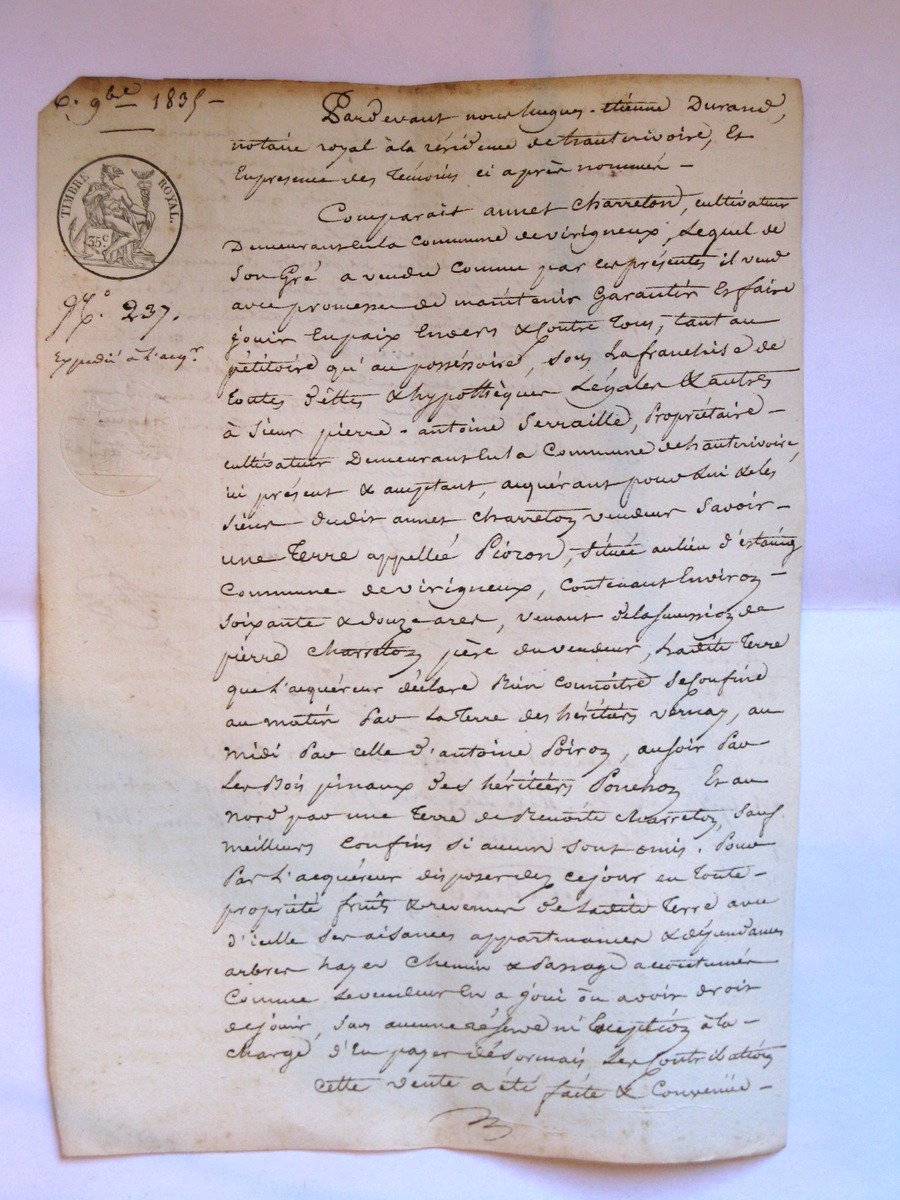 6. 9bre 1835 -
TIMBRE ROYAL.
35c
No. 237.
Expédié à l'acqr
Pardevant nous hugues-étienne Durand,
notaire royal à la résidence de hauterivoire, Et
En presence des Témoins ci après nommés -
Comparait annet Charreton, cultivateur
Demeurant En la Commune de virigneux, Lequel de
Son Gré a vendu Comme par ces présentes il vend
avec promesse de maintenir Garantir Et faire
jouir En paix Envers & Contre Tous, tant au
pétitoire qu'au posséssoire, Sous La franchise de
Toutes dettes & hypothèques Légales & autres
à Sieur pierre-antoine Serraille, Propriétaire-
cultivateur Demeurant En la Commune de hauterivoire,
ici présent & acceptant, acquérant pour Lui & les
Siens dudit annet Charreton vendeur Savoir -
une Terre appellée Piozon, Située au lieu d'
Commune de virigneux, Contenant Environ -
Soixante & douze ares, venant de la Succession de
pierre Charreton père du vendeur, Ladite Terre
que L'acquéreur déclare Bien Connoître Se Confine
au matin Par La Terre des héritiers vernay, au
midi Par celle d'antoine Poiron, au Soir Par
Les Bois pinaux des héritiers Ponchon Et au
Nord par une Terre de Benoite Charreton, Sauf
meilleurs Confins Si aucuns Sont omis. Pour
Par L'acquéreur disposer dès ce jour en Toute -
propriété fruits & revenus de Ladite Terre avec
d'icelle Ses aisances appartenances & dépendances
arbres hayes Chemin & Passage accoutumés
Comme Le vendeur En a joui ou avoir droit
de jouir, Sans aucune réserve ni Exception à la -
charge d'En payer désormais Les Contributions
Cette vente a été faite & Convenue -